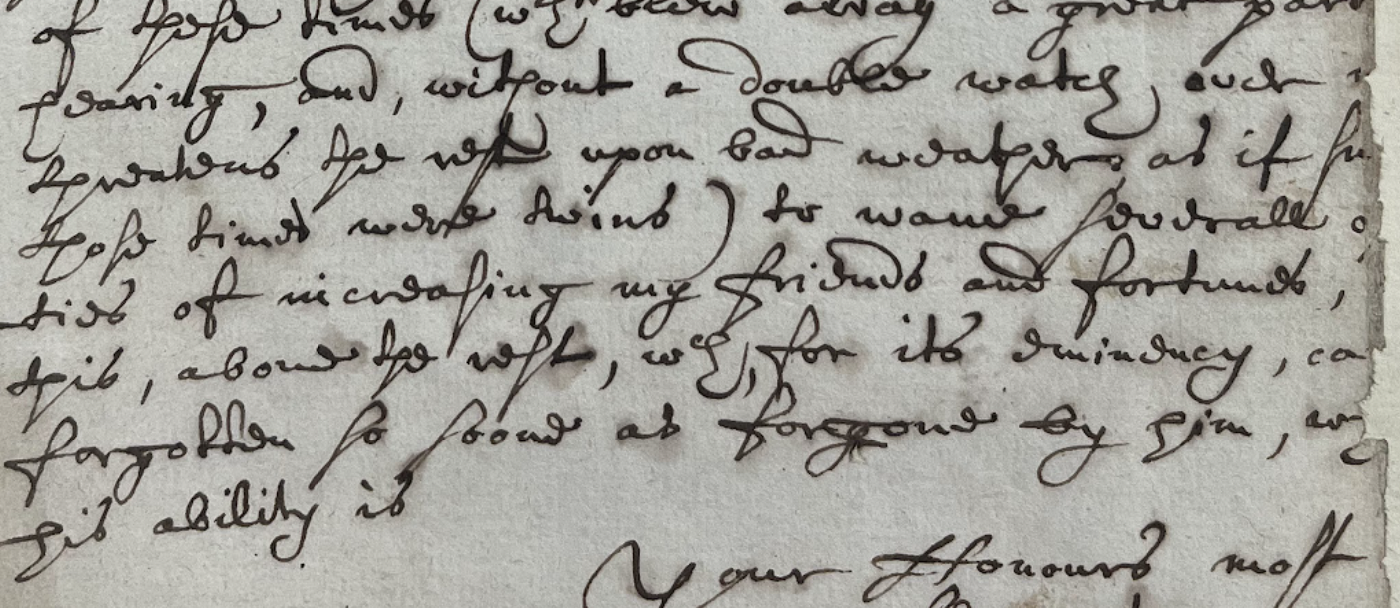 of these times (wch blew away a great part
hearing, and, without a double watch, euer
threatens the rest upon bad weather, as if
those times were twins) to waue seuerall
ties of increasing my friends and fortunes,
this, aboue the rest, wch, for its eminency, ca
forgotten so soone as forgone by him, w
his ability is
Your Honours most